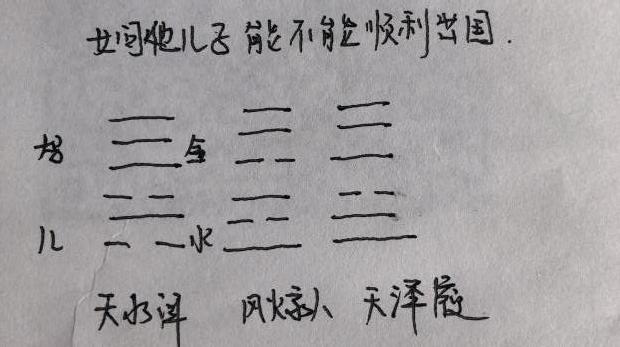 女问他儿子能不能顺利出国.
母 金
儿 水
天水讼 风火家人 天泽履